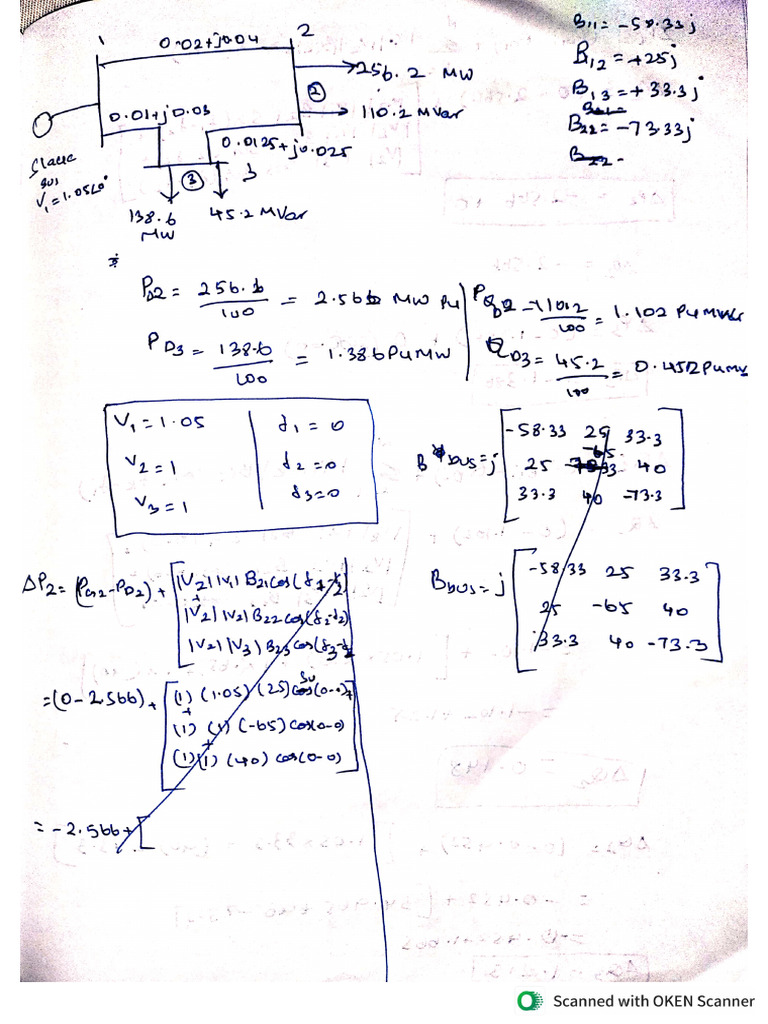 1 0.02+j0.04 2
B11= -58.33j
B12 = +25j
B13 = + 33.3j
B22= -73.33j
B22 -
256.2 MW
②
110.2 MVar
0.01+j0.03
0.0125+j0.025
Slack
bus
V1=1.05∠0°
③ 3
138.6
MW
45.2 MVar
PD2 = 256.6/100 = 2.566 MW Pu
QD2 = 110.2/100 = 1.102 Pu MVar
PD3 = 138.6/100 = 1.386 Pu MW
QD3 = 45.2/100 = 0.452 Pu MV
V1 = 1.05 | δ1 = 0
V2 = 1 | δ2 = 0
V3 = 1 | δ3 = 0
B bus = j
-58.33 25 33.3
-65
25 -73.33 40
33.3 40 -73.3
ΔP2 = (PG2-PD2) +
|V2| |V1| B21 cos(δ1-δ2)
+
|V2| |V2| B22 cos(δ2-δ2)
|V2| |V3| B23 cos(δ3-δ2
Bbus = j
-58.33 25 33.3
25 -65 40
33.3 40 -73.3
=(0-2.566)+
(1) (1.05) (25) cos(0-0)+
+
(1) (1) (-65) cos(0-0)
+
(1) (1) (40) cos(0-0)
= -2.566+[
Scanned with OKEN Scanner